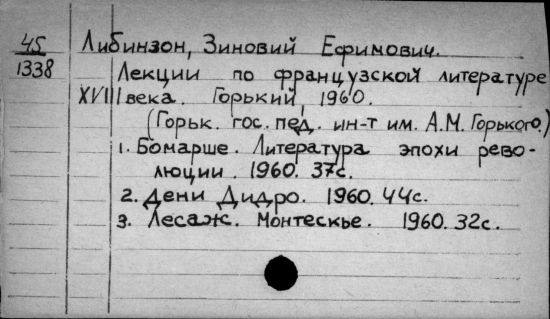 45 Либинзон, Зиновий Ефимович.
1338 Лекции по французской литературе
XVIII века. Горький, 1960.
(Горьк. гос. пед. ин-т им. А.М. Горького.)
1. Бомарше. Литература эпохи рево-
люции. 1960. 37с.
2. Дени Дидро. 1960. 44с.
3. Лесаж. Монтескье. 1960. 32с.